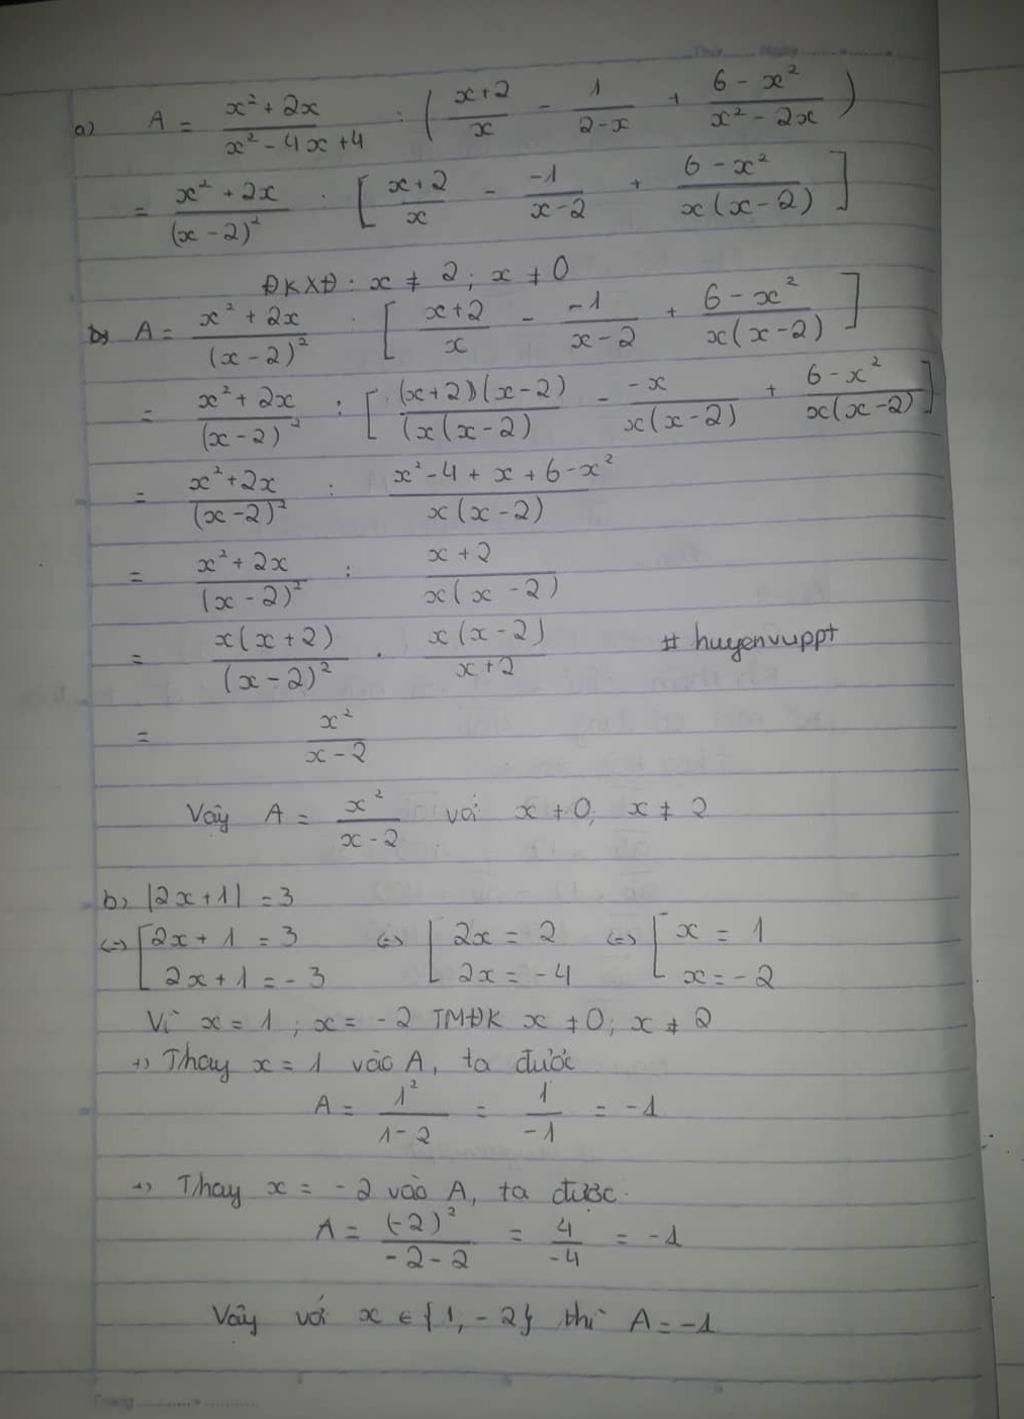 Thứ Ngày
a) A = (x² + 2x)/(x² - 4x + 4) : ( (x+2)/x - 1/(2-x) + (6 - x²)/(x² - 2x) )
= (x² + 2x)/(x - 2)² : [ (x+2)/x - (-1)/(x-2) + (6 - x²)/(x(x-2)) ]
ĐKXĐ : x ≠ 2 ; x ≠ 0
b) A = (x² + 2x)/(x - 2)² : [ (x+2)/x - (-1)/(x-2) + (6 - x²)/(x(x-2)) ]
= (x² + 2x)/(x - 2)² : [ (x+2)(x-2)/(x(x-2) - (-x)/(x(x-2)) + (6 - x²)/(x(x-2)) ]
= (x² + 2x)/(x-2)² : (x² - 4 + x + 6 - x²)/(x(x-2))
= (x² + 2x)/(x - 2)² : (x + 2)/(x(x - 2))
= x(x + 2)/(x - 2)² . x(x - 2)/(x + 2) # huyenvuppt
= x²/(x - 2)
Vây A = x²/(x - 2) với x ≠ 0; x ≠ 2
b, |2x + 1| = 3
<=> [ 2x + 1 = 3 <=> [ 2x = 2 <=> [ x = 1
2x + 1 = - 3 2x = - 4 x = - 2
Vì x = 1 ; x = - 2 TMĐK x ≠ 0; x ≠ 2
+) Thay x = 1 vào A, ta được
A = 1²/(1 - 2) = 1/(-1) = -1
+) Thay x = - 2 vào A, ta được.
A = (-2)²/(-2 - 2) = 4/(-4) = -1
Vây với x ∈ {1, - 2} thì A = -1
Trang